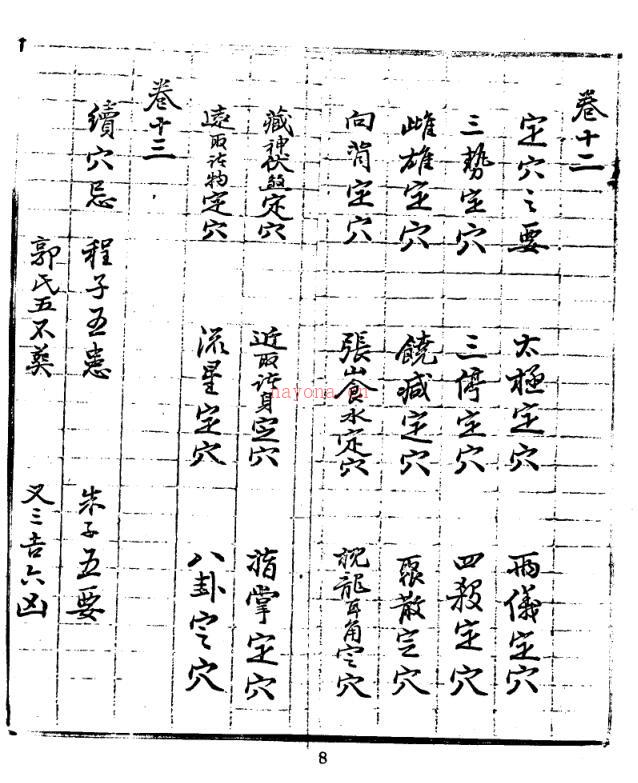 卷十二
定穴之要 太極定穴 兩儀定穴
三勢定穴 三停定穴 四殺定穴
雌雄定穴 饒减定穴 聚散定穴
向背定穴 張山食水定穴 枕龍耳角定穴
藏神伏煞定穴 近取諸身定穴 指掌定穴
遠取諸物定穴 流星定穴 八卦定穴
卷十三
續穴忌 程子五患 朱子五要
郭氏五不葬 又三吉六凶
nayona.cn
8